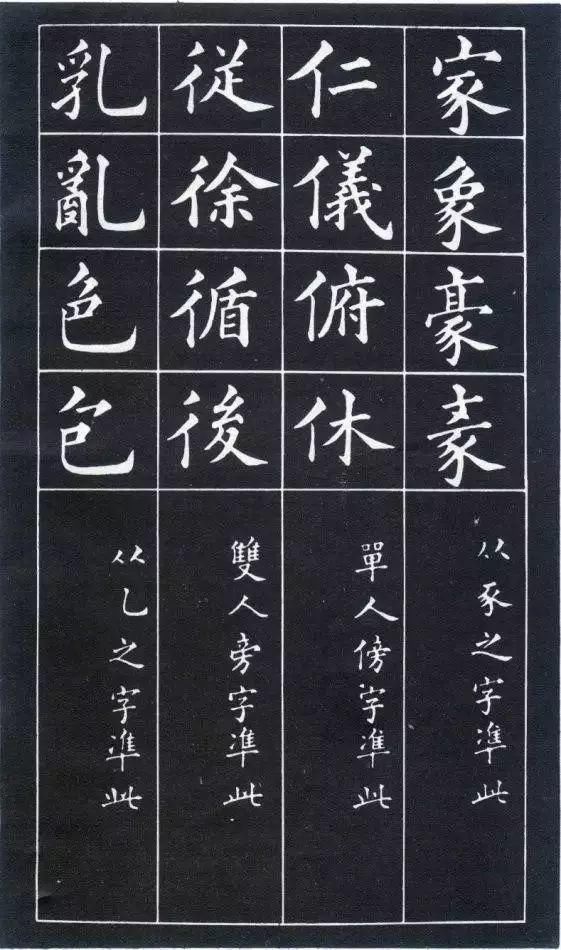 家象豪
从豕之字凖此
仁儀俯休
單人傍字凖此
従徐循後
雙人旁字凖此
乳亂色包
从乙之字凖此